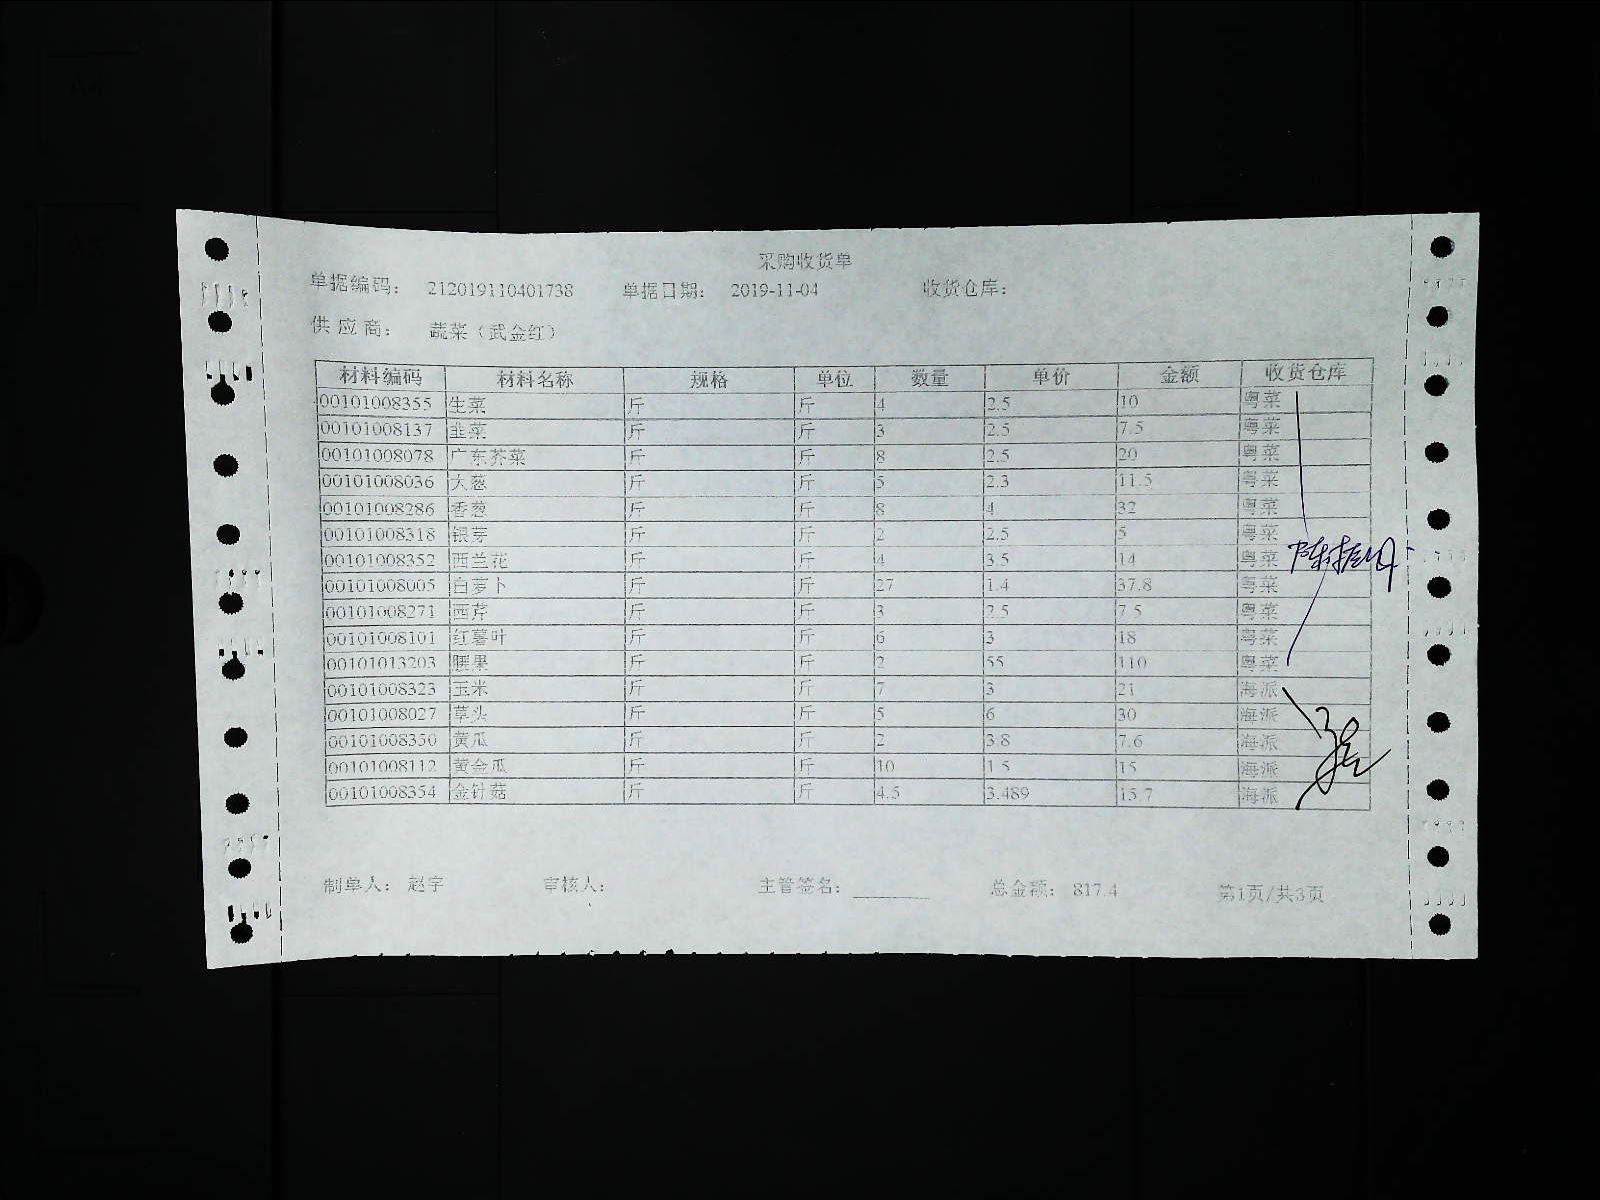 采购收货单
单据编码： 212019110401738 单据日期： 2019-11-04 收货仓库：
供应商： 蔬菜（武金红）
材料编码 材料名称 规格 单位 数量 单价 金额 收货仓库
00101008355 生菜 斤 斤 4 2.5 10 粤菜
00101008137 韭菜 斤 斤 3 2.5 7.5 粤菜
00101008078 广东芥菜 斤 斤 8 2.5 20 粤菜
00101008036 大葱 斤 斤 5 2.3 11.5 粤菜
00101008286 香葱 斤 斤 8 4 32 粤菜
00101008318 银芽 斤 斤 2 2.5 5 粤菜
00101008352 西兰花 斤 斤 4 3.5 14 粤菜
00101008005 白萝卜 斤 斤 27 1.4 37.8 粤菜
00101008271 西芹 斤 斤 3 2.5 7.5 粤菜
00101008101 红薯叶 斤 斤 6 3 18 粤菜
00101013203 腰果 斤 斤 2 55 110 粤菜
00101008323 玉米 斤 斤 7 3 21 海派
00101008027 草头 斤 斤 5 6 30 海派
00101008350 黄瓜 斤 斤 2 3.8 7.6 海派
00101008112 黄金瓜 斤 斤 10 1.5 15 海派
00101008354 金针菇 斤 斤 4.5 3.489 15.7 海派
制单人： 赵宇 审核人： 主管签名： 总金额： 817.4 第1页/共3页